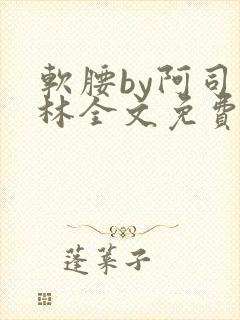 軟腰by阿司
林全文免費
蓬萊子